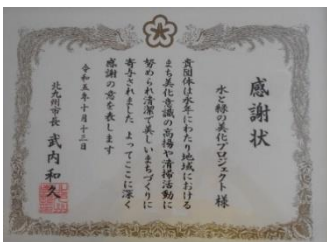 感謝状
水と緑の美化プロジェクト 様
貴団体は永年にわたり地域における
まち美化意識の高揚や清掃活動に
努められ清潔で美しいまちづくりに
寄与されました よってここに深く
感謝の意を表します
令和五年十月十三日
北九州市長 武内和久